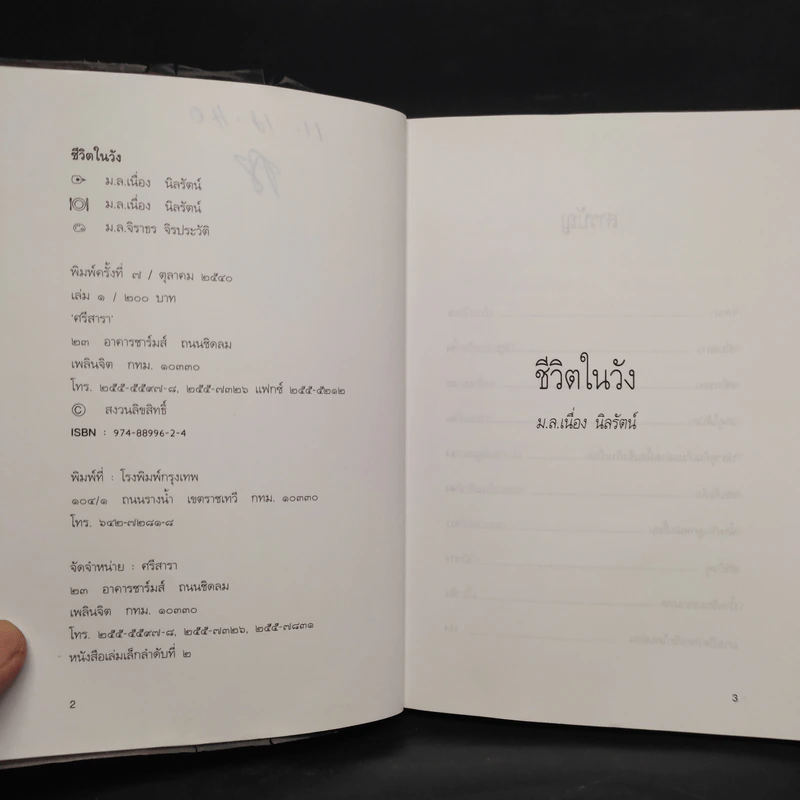 ชีวิตในวัง
ม.ล.เนื่อง นิลรัตน์
ม.ล.เนื่อง นิลรัตน์
ม.ล.จิราธร จิรประวัติ
พิมพ์ครั้งที่ ๗ / ตุลาคม ๒๕๔๐
เล่ม ๑ / ๒๐๐ บาท
'ศรีสารา'
๒๓ อาคารชาร์มส์ ถนนชิดลม
เพลินจิต กทม. ๑๐๓๓๐
โทร. ๒๕๕-๕๕๙๗-๘, ๒๕๕-๗๓๒๖ แฟกซ์ ๒๕๕-๕๒๑๒
© สงวนลิขสิทธิ์
ISBN : 974-88996-2-4
พิมพ์ที่ : โรงพิมพ์กรุงเทพ
๑๐๔/๑ ถนนรางน้ำ เขตราชเทวี กทม. ๑๐๓๓๐
โทร. ๖๔๒-๗๒๘๑-๘
จัดจำหน่าย : ศรีสารา
๒๓ อาคารชาร์มส์ ถนนชิดลม
เพลินจิต กทม. ๑๐๓๓๐
โทร. ๒๕๕-๕๕๙๗-๘, ๒๕๕-๗๓๒๖, ๒๕๕-๗๘๓๑
หนังสือเล่มเล็กลำดับที่ ๒
2
ชีวิตในวัง
ม.ล.เนื่อง นิลรัตน์
3